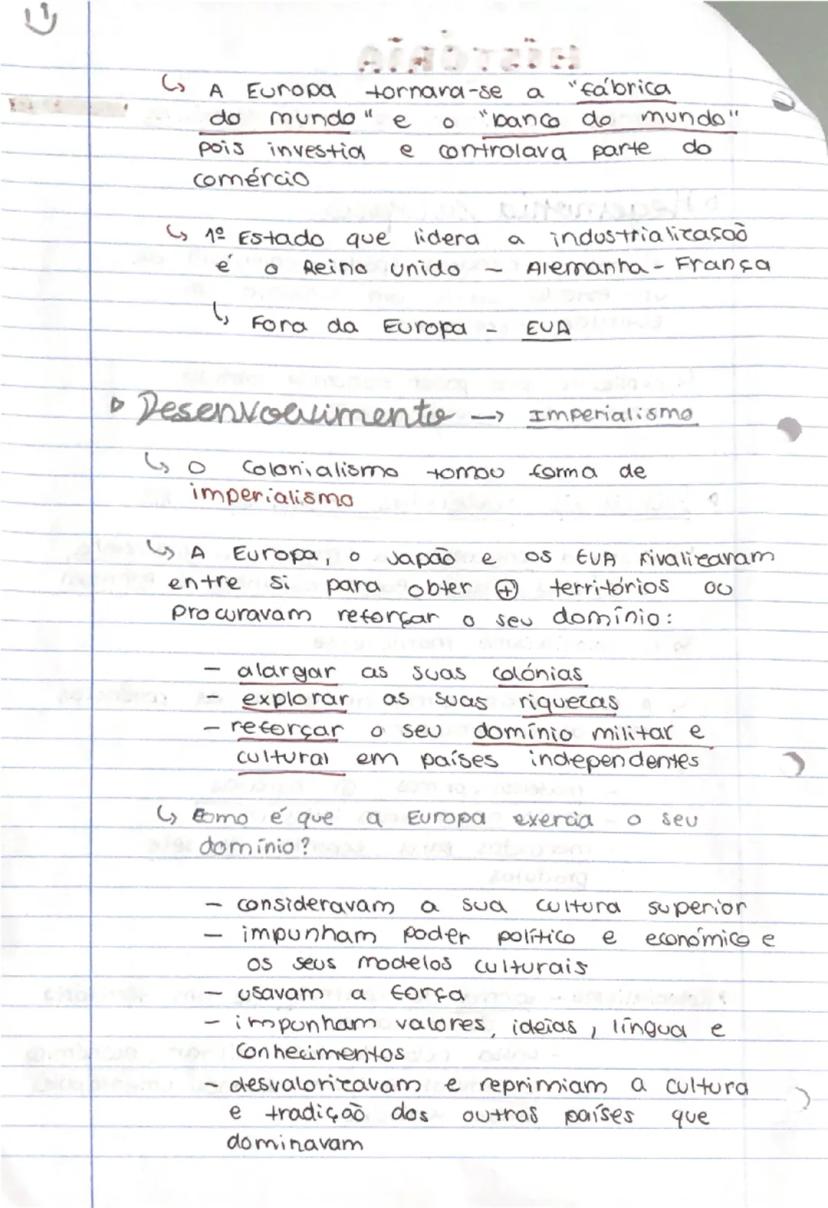 ↳ A Europa tornara-se a "fábrica
do mundo" e o "banco do mundo"
pois investia e controlava parte do
comércio
↳ 1º Estado que lidera a industrializasão
é o Reino unido - Alemanha - França
↳ Fora da Europa - EUA
▹ Desenvolvimento → Imperialismo
↳ O Colonialismo tomou forma de
imperialismo
↳ A Europa, o Japão e os EUA rivalizavam
entre si para obter ⊕ territórios ou
procuravam reforçar o seu domínio:
- alargar as suas colónias
- explorar as suas riquezas
- reforçar o seu domínio militar e
cultural em países independentes
↳ Como é que a Europa exercia o seu
domínio?
- consideravam a sua cultura superior
- impunham poder político e económico e
os seus modelos culturais
- usavam a força
- impunham valores, ideias, língua e
conhecimentos
- desvalorizavam e reprimiam a cultura
e tradição dos outros países que
dominavam